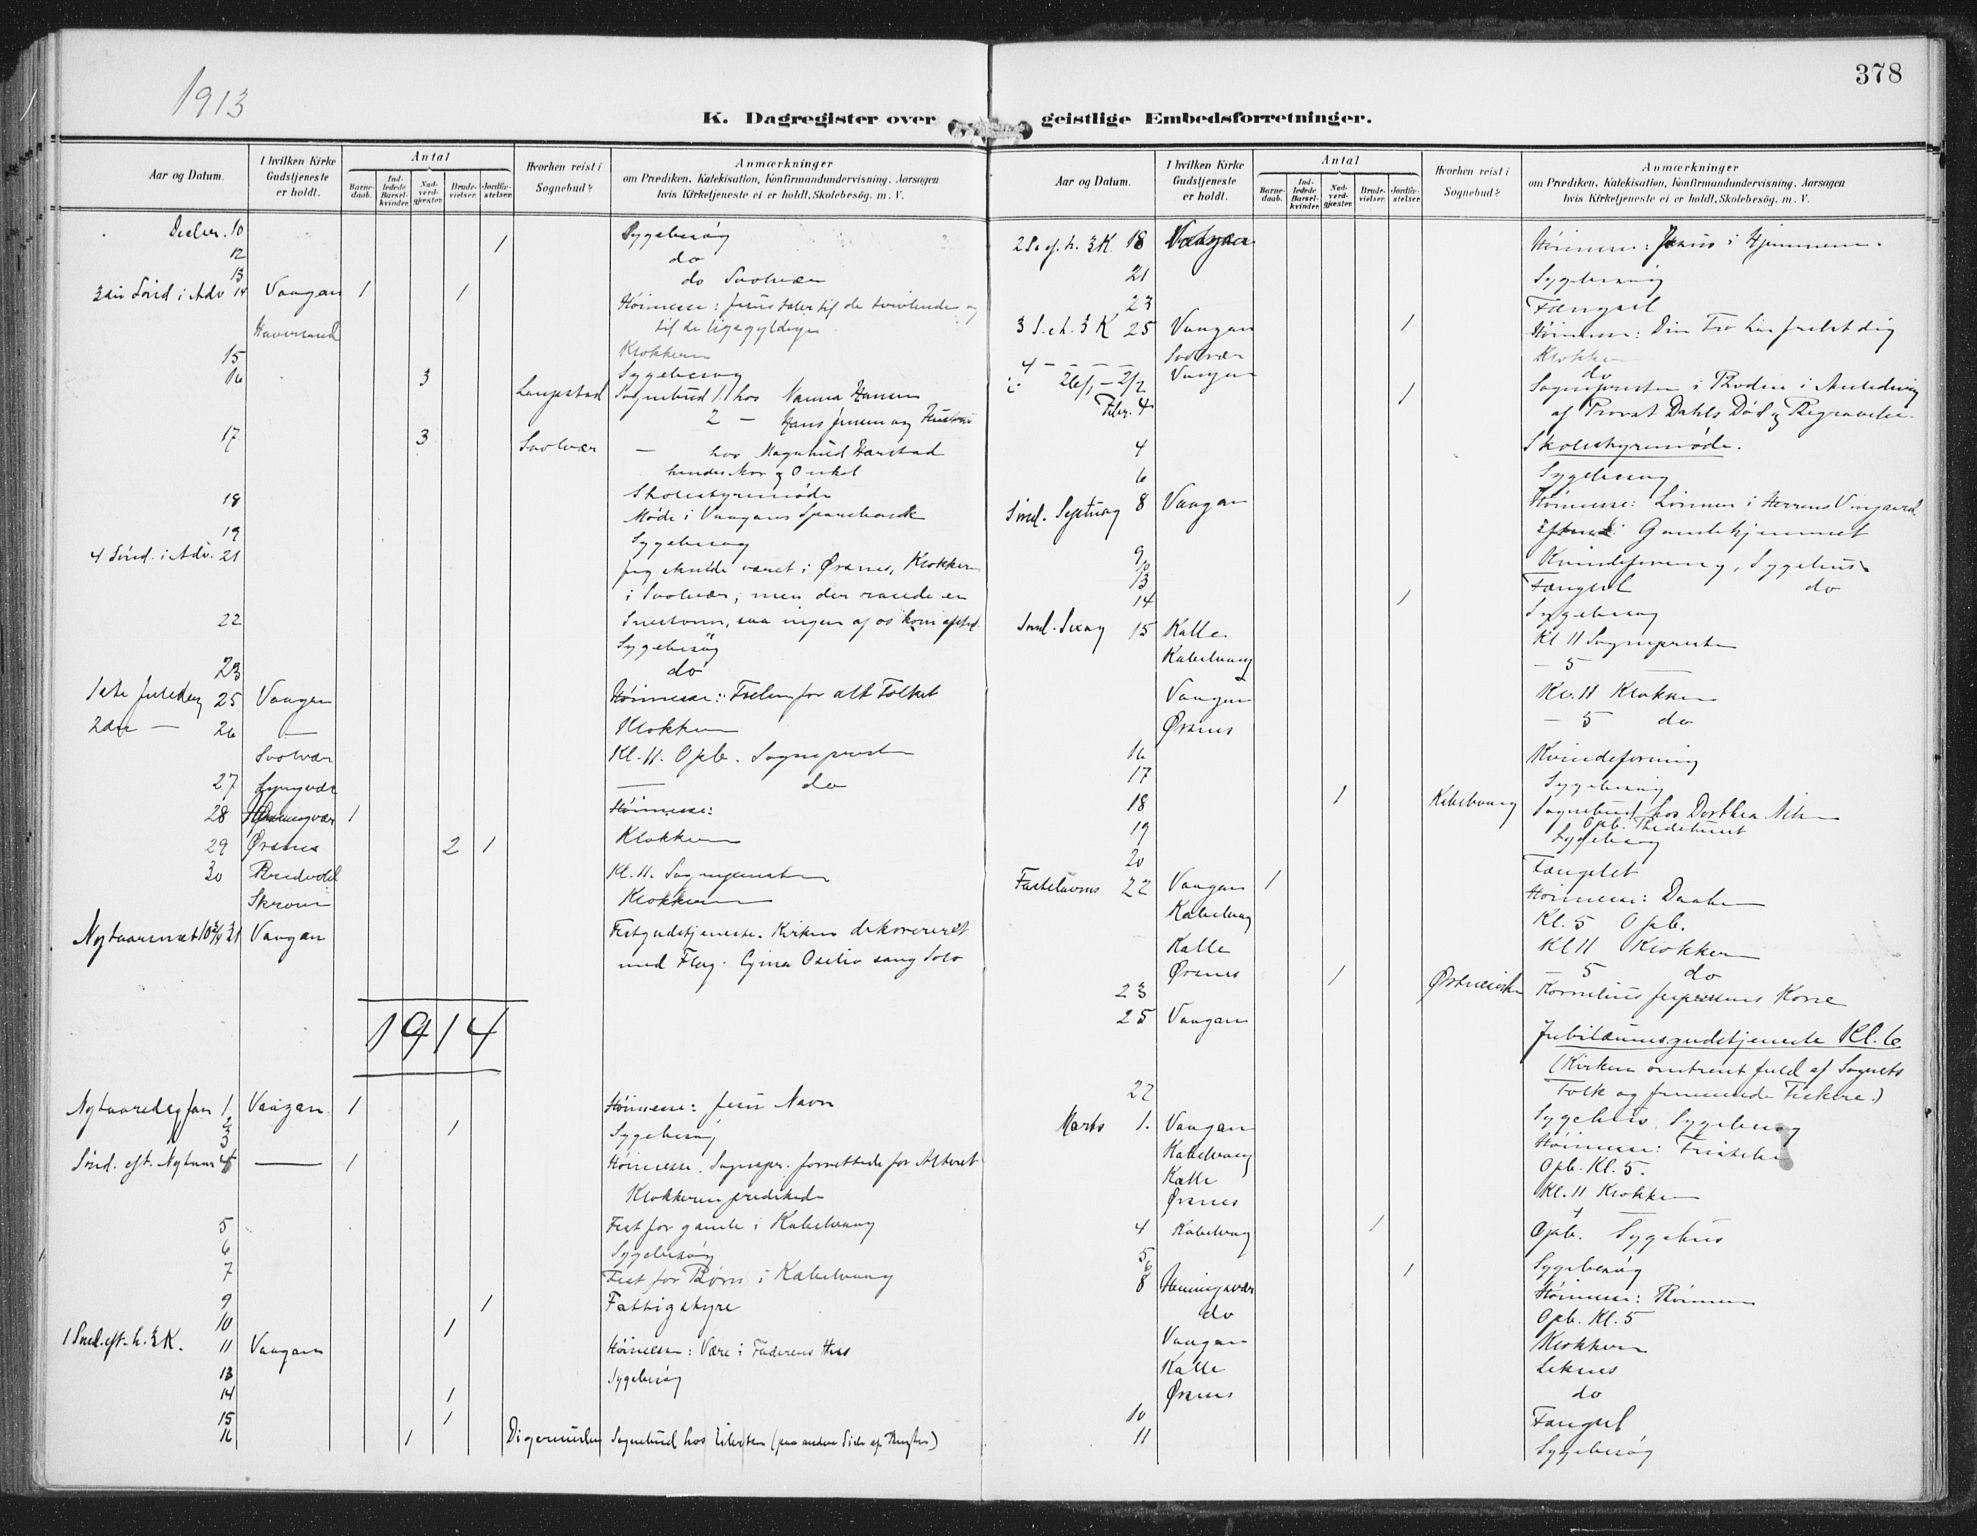 1913
378
K. Dagregister over geistlige Embedsforretninger.
Aar og Datum.
I hvilken Kirke Gudstjeneste er holdt.
Antal
Barnedaab.
Indledede Barselkvinder.
Nadverdgjæster.
Brudevielser.
Jordfæstelser.
Hvorhen reist i Sognebud?
Anmærkninger
om Prædiken, Katekisation, Konfirmandundervisning, Aarsagen
hvis Kirketjeneste ei er holdt, Skolebesög. m. V.
Decbr. 10 Sygebesøg
12 1 do
13 do Svolvær
3die Sönd i Adv 14 Vaagan 1 1 Høimesse: Jesus taler til de tvivlende og
til de ligegyldige
Klokkeren
15 Sygebesøg
16 3 Sognebud 1 hos Nanna Hansen
2 — Hans Jensen og Hustru
17 3 Svolvær — hos Magnhild Harstad
hendes Mor og Onkel
Skolestyremøde
18 Møde i Vaagans Sparebank
19 Sygebesøg
4 Sönd. i Adv. 21 Jeg skulde været i Ørsnes, Klokkeren
i Svolvær, men der rasede en
Snestorm, saa ingen af os kom afsted.
22 Sygebesøg
23 do
1ste Juledag 25 Vaagan Høimesse: Frelsen for alt Folket
2den — 26 — Klokkeren
Svolvær Kl. 11. Opb. Sognepresten
27 Lyngvær — do
28 1 Høimesse:
29 Ørsnes 2 1 Klokkeren
30 Kl. 11. Sognepresten
Skroven Klokkeren
Nytaarsnat 10 3/4 31 Vaagan Festgudstjeneste. Kirken dekoreret
med Flag. sang Solo
1914
Nytaarsdag Jan 1 Vaagan 1 Høimesse: Jesu Navn
2
3 1 Sygebesøg
Sönd. eft. Nytaar 4 — 1 Høimesse. Sognepr. forrettede for Alteret
Klokkeren predikede
5 Fest for gamle i Kabelvaag
6 Sygebesøg
7 Fest for Børn i Kabelvaag
9 1 Fattigstyre
10 1
1 Sönd. eft. h. 3 K. 11 Vaagan Høimesse: Være i Faderens Hus
13 Sygebesøg
14 1
15 1
16 1 Digermulen Sognebud hos
Aar og Datum.
I hvilken Kirke Gudstjeneste er holdt.
Antal
Barnedaab.
Indledede Barselkvinder.
Nadverdgjæster.
Brudevielser.
Jordfæstelser.
Hvorhen reist i Sognebud?
Anmærkninger
om Prædiken, Katekisation, Konfirmandundervisning, Aarsagen
hvis Kirketjeneste ei er holdt, Skolebesög. m. V.
2 S. ef. h. 3 K. 18 Vaagan Høimesse: Jesus i Hjemmene.
21 Sygebesøg
23 Fængsel
3 S. e. h. 3 K 25 Vaagan 1 Høimesse: Din Tro har frelst dig
Svolvær Klokken
4 — — — — Vaagan do
26/1 – 2/2 Sognepresten i Bodø i Anledning
Febr. 4 1 af Provst Dahls Død og Begravelse.
4 Skolestyremøde.
6 Sygebesøg
Sönd. Septuag 8 Vaagan Høimesse: Lønnen i Herrens Vingaard
Gamlehjemmet
9 Kvindeforening, Sygehus
13 Fængsel do
14 1 Sygebesøg
Sönd. Sexag 15 Kalle Kl 11 Sognepresten
Kabelvaag — 5 —
Vaagan Kl. 11 Klokken
Ørsnes — 5 do
16 Kvindeforening
17 Sygebesøg
18 1 Kabelvaag Sognebud hos Dorthea
Opb.
19 Sygebesøg
20 Fængslet
Fastelavns 22 Vaagan 1 Høimesse: Daaben
Kabelvaag Kl. 5 Opb.
Kalle Kl 11 Klokken
Ørsnes — 5 do
23 1 Kornelius Kone
25 Vaagan Jubilæumsgudstjeneste Kl. 6
(Kirken omtrent fuld af Sognets
Folk og fremmede Fiskere.)
27 Sygehus, Sygebesøg
Marts 1. Vaagan Høimesse: Fristelse
Kabelvaag Opb. Kl. 5.
Kalle Kl. 11 Klokken
Ørsnes
4 Kabelvaag 1 Opb. Sygehus
5
6 1 Sygebesøg
8 Henningsvær Høimesse: Bønnen
do Opb. Kl. 5
Vaagan Klokkeren
Kalle Leknes
Ørsnes do
10 Fængsel
11 Sygebesøg